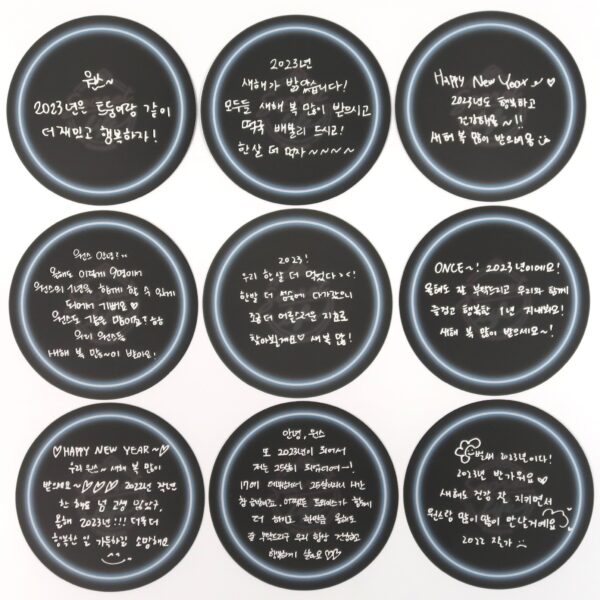 원쓰~
2023년은 트둥이랑 같이
더 재밌고 행복하자!
2023년
새해가 밝았습니다!
모두들 새해 복 많이 받으시고
떡국 배불리 드시고!
한살 더 먹자~~~~
HAPPY NEW YEAR~♡
2023년도 행복하고
건강해욤~!!
새해 복 많이 받으세용
원스 안녕?
올해도 이렇게 9명이서
원스와 1년을 함께 할 수 있게
되어서 기뻐요♡
원스도 같은 맘이죠?
우리 원스들
새해 복 많~이 받아요!
2023!
우리 한살 더 먹었다><!
한발 더 다가갔으니
조금 더 어른스러운 지효로
찾아뵐게요♡ 새복 많!
ONCE~! 2023년이에요!
올해도 잘 부탁드리고 우리와 함께
즐겁고 행복한 1년 지내봐요!
새해 복 많이 받으세요~!
♡HAPPY NEW YEAR~♡
우리 원스~ 새해 복 많이
받으세요~♡♡♡ 2022년 작년
한 해도 넘 고생 많았구,
올해 2023년!!! 더욱 더
행복한 일 가득하길 소망해요
안녕, 원스
또 2023년이 되어서
저는 25살이 되었어여~!
17이 데뷔해서 25살이라니 나는
참 행복해요. 트와이스가 함께
더 해피고 올해도
잘 부탁드리구 우리 항상 건강하고
행복하게 살아요♡
벌써 2023년이다!
2023년 반가워요♡
새해도 건강 잘 지키면서
원스랑 많이많이 만날거예요
2022 잘가